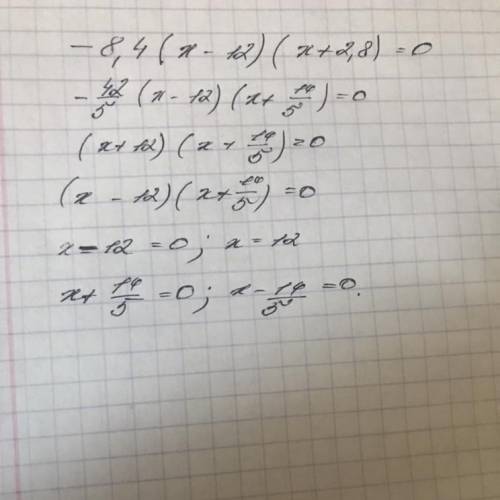 - 8,4 (x - 12) (x + 2,8) = 0
- 42/5 (x - 12) (x + 14/5) = 0
(x + 12) (x + 14/5) = 0
(x - 12) (x + 14/5) = 0
x - 12 = 0; x = 12
x + 14/5 = 0; x - 14/5 = 0.